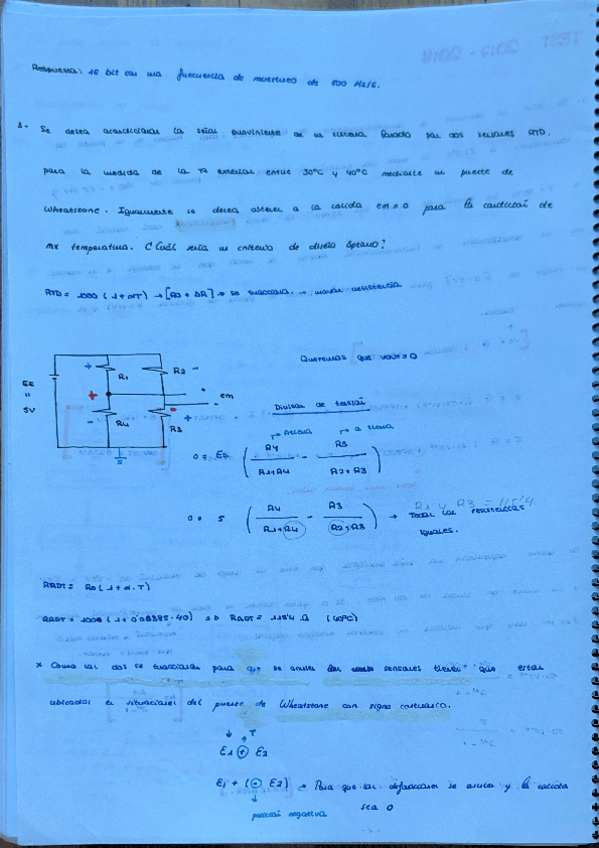 Respuesta: 16 bit con una frecuencia de muestreo de 500 Hz/s.
1- Se desea acondicionar la señal proviniente de un sistema formado por dos sensores RTD,
para la medida de la Tª exterior entre 30ºC y 40ºC mediante un puente de
Wheatstone. Igualmente se desea obtener a la salida em=0 para la condición de
mx temperatura. ¿Cuál sería un criterio de diseño óptimo?
RTD = 1000 (1+αT) → [R0 + ΔR] → se tracciona. → mayor resistencia
Queremos que vout=0
R1
R2 -
EE
=
5V
+
em
-
R4
R3
+
Divisor de tensión
0 = Es ( R4 / R1+R4 - R3 / R2+R3 )
0 = 5 ( R4 / R1+R4 - R3 / R2+R3 ) → Todas las resistencias
iguales.
RRDT = R0 (1+α.T)
RRDT = 1000 (1+0'00385.40) → RRDT = 1154 Ω (40ºC)
* Como las dos se traccionan para que se anulen los sensores tienen que estar
ubicados en situaciones del puente de Wheatstone con signo contrario.
↓ ↑ T
E1 + E2
E1 + (- E2) → Para que las deformaciones se anulen y la salida
sea 0
↓
posición negativa